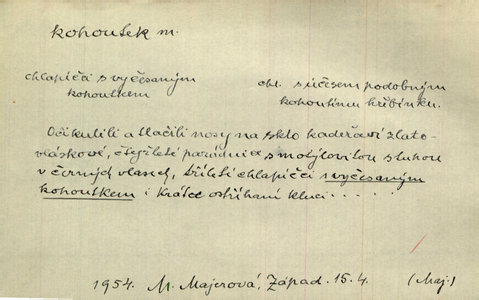 kohoutek m.
chlapíčci s vyčesaným kohoutkem
chl. s účesem podobným kohoutímu hřbínku.
Očihulili a tlačili nosy na sklo kadeřaví zlato-
vláskové, čtyřleté parádnice s motýlovitou stuhou
v černých vlasech, tříletí chlapíčci s vyčesaným
kohoutkem i krátce ostříhaní kluci . . . . .
1954. M. Majerová, Západ. 15.4. (Maj.)